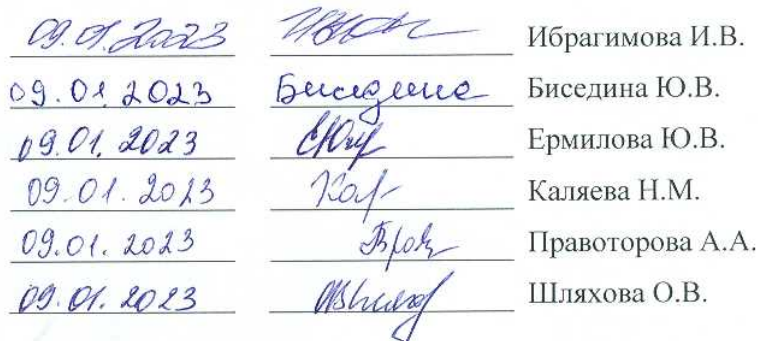 09.01.2023 Ибрагимова И.В.
09.01.2023 Биседина Биседина Ю.В.
09.01.2023 Ермилова Ю.В.
09.01.2023 Каляева Н.М.
09.01.2023 Правоторова А.А.
09.01.2023 Шляхова О.В.